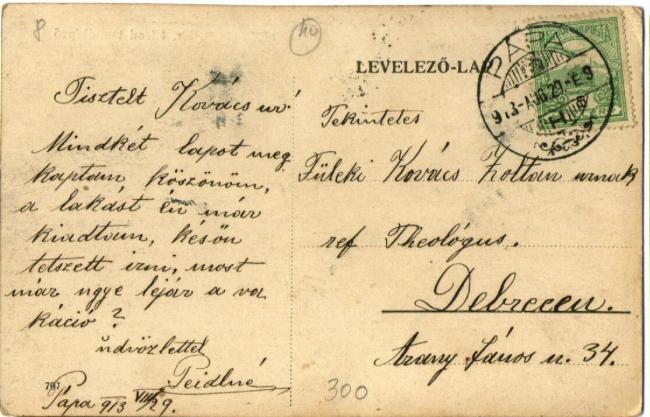 8
40
LEVELEZŐ-LAP
PÁPA
913-AUG.29-E8
POSTA
Tisztelt Kovács ur!
Mindkét lapot meg
kaptam köszönöm,
a lakást én már
kiadtam, későn
tetszett irni, most
már ugye lejár a va
káció?
üdvözlettel
Peidlné
Pápa 913 VIII/29.
797
Tekintetes
Füleki Kovács Zoltan urnak
ref Theológus.
Debreczen.
Arany János u. 34.
300